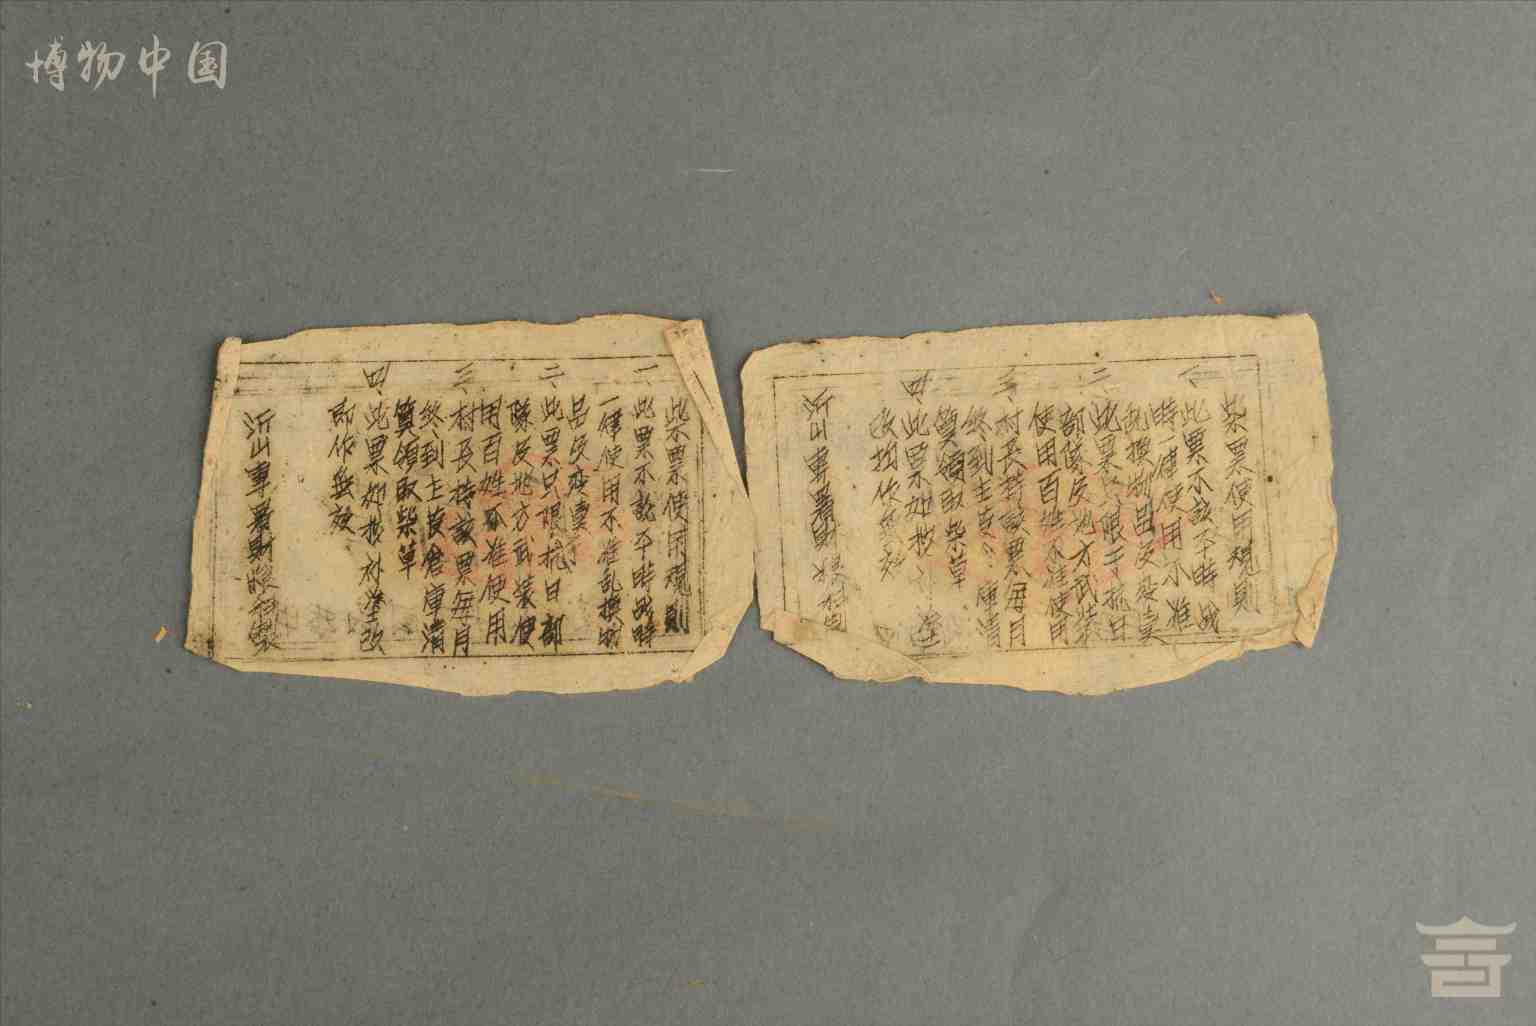 博物中国
柴票使用規則
一、此票不論平時战
時一律使用不准
乱換物品及变卖
二、此票只限于抗日
部隊及地方武装
使用百姓不准使用
三、村長持該票每月
終到主
庫清
算領取柴草
四、此票如
塗
改
作無効
沂山專署財粮科
柴票使用規則
一、此票不論平時战時
一律使用不准乱換物
品及变賣
二、此票只限抗日部
隊及地方武装使
用百姓不准使用
三、村長持該票每月
終到主
倉庫清
算領取柴草
四、此票如
塗改
即作無效
沂山專署財粮科製